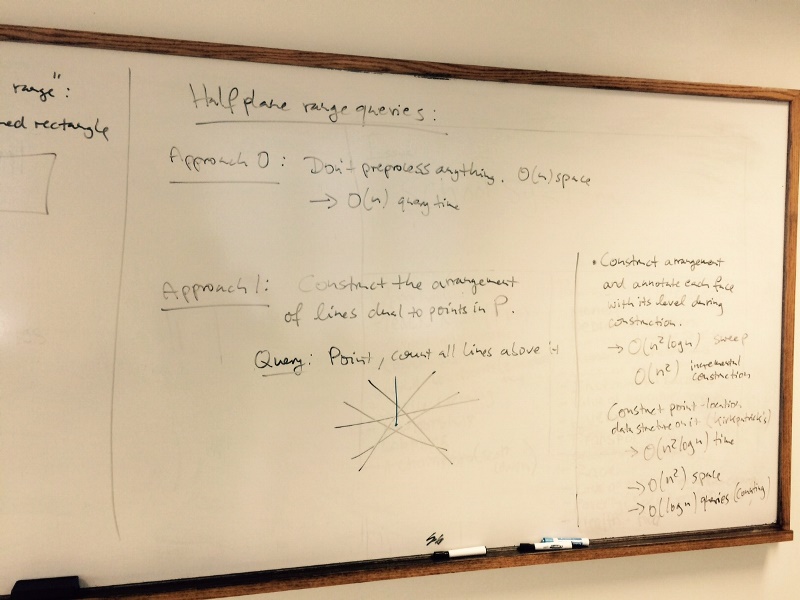 range":
ned rectangle
Halfplane range queries:
Approach 0: Don't preprocess anything. O(n) space
→ O(n) query time
Approach 1: Construct the arrangement
of lines dual to points in P.
Query: Point, count all lines above it
• Construct arrangement
and annotate each face
with its level during
construction.
→ O(n² log n) sweep
O(n²) incremental
construction
Construct point-location
data structure on it (Kirkpatrick's)
→ O(n² log n) time
→ O(n²) space
→ O(log n) queries (counting)